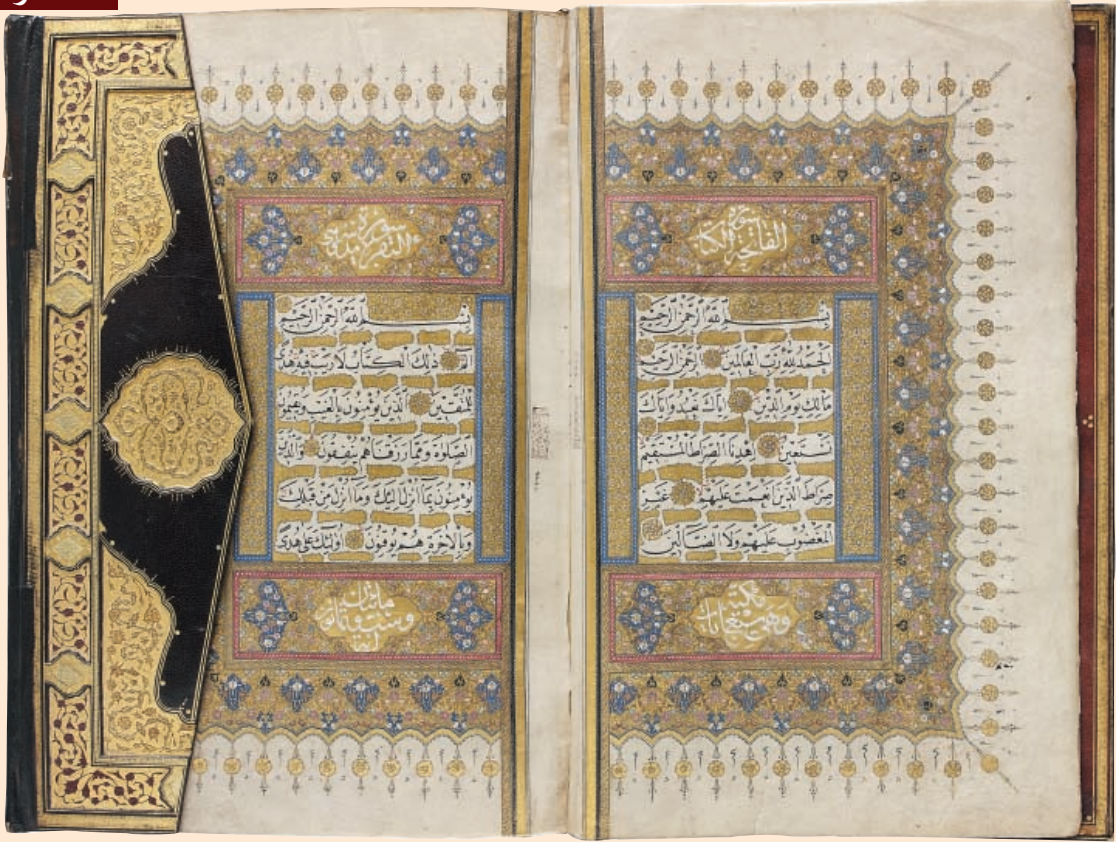 سورة
الفاتحة الكتاب
بسم الله الرحمن الرحيم
الحمد لله رب العالمين الرحمن الرحيم
مالك يوم الدين اياك نعبد واياك
نستعين اهدنا الصراط المستقيم
صراط الذين انعمت عليهم غير
المغضوب عليهم ولا الضالين
مكية
وهي سبع ايات
سورة
البقرة مدنية
بسم الله الرحمن الرحيم
الم ذلك الكتاب لا ريب فيه هدى
للمتقين الذين يؤمنون بالغيب ويقيمون
الصلوة ومما رزقناهم ينفقون والذين
يؤمنون بما انزل اليك وما انزل من قبلك
وبالاخرة هم يوقنون اولئك على هدى
مائتان
وست وثمانون
اية